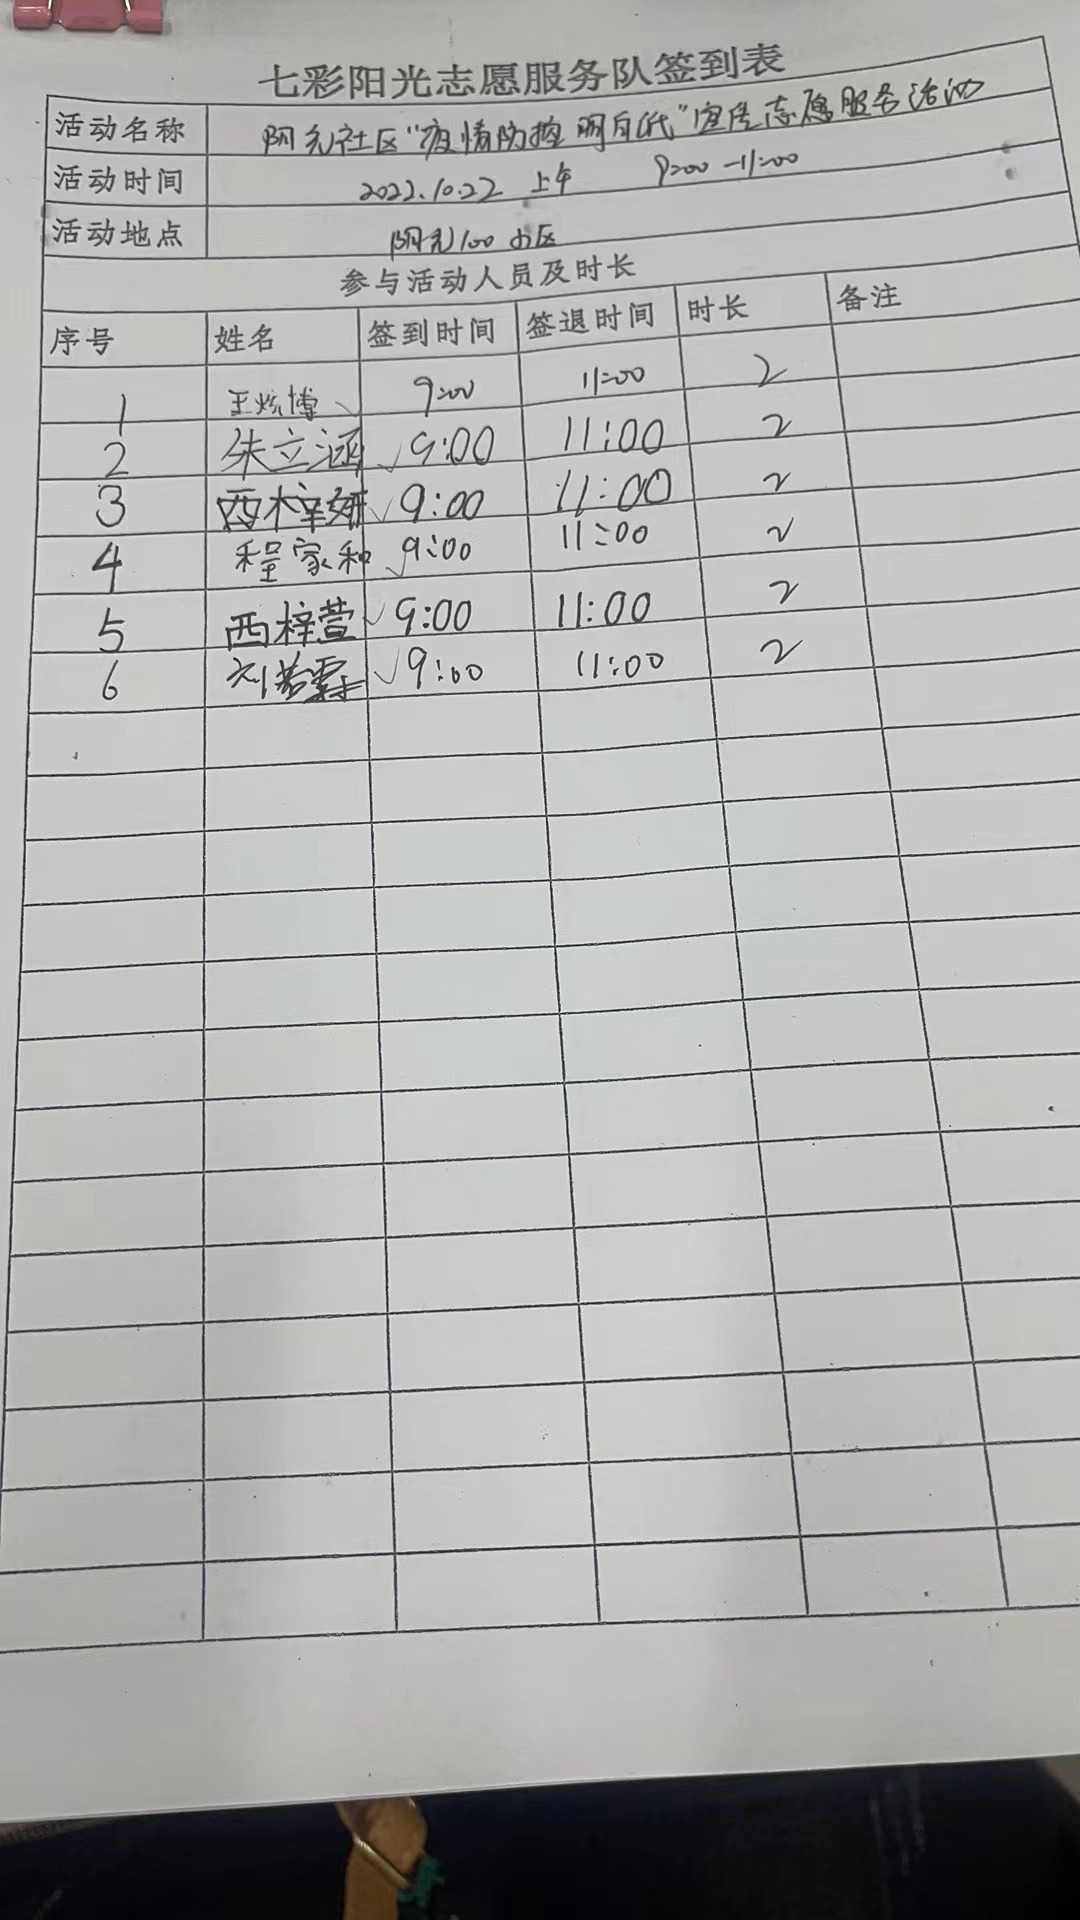 七彩阳光志愿服务队签到表
活动名称 阳光社区"疫情防控 明白纸"宣传志愿服务活动
活动时间 2022.10.22 上午 9:00-11:00
活动地点 阳光100小区
参与活动人员及时长
序号 姓名 签到时间 签退时间 时长 备注
1 王炫博 ✓ 9:00 11:00 2
2 朱立涵 ✓ 9:00 11:00 2
3 西梓妍 ✓ 9:00 11:00 2
4 程家和 ✓ 9:00 11:00 2
5 西梓萱 ✓ 9:00 11:00 2
6 刘若霖 ✓ 9:00 11:00 2